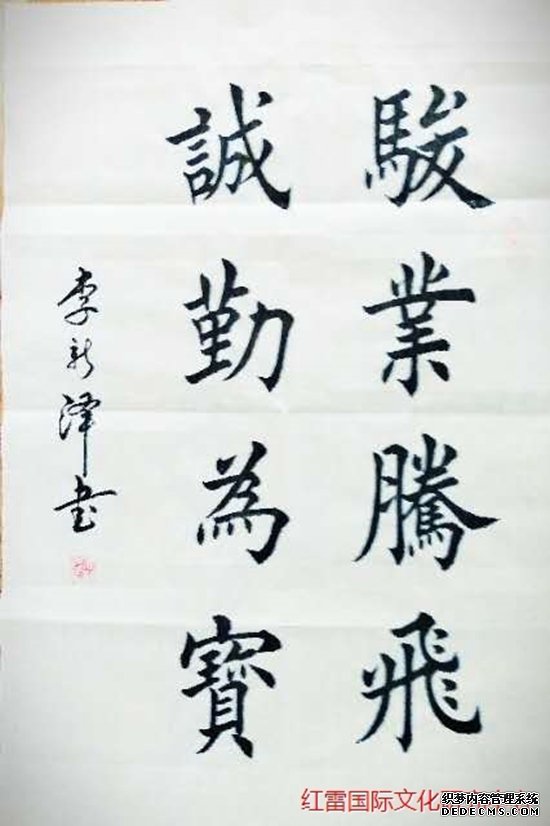 駿業騰飛
誠勤為寶
李新泽书
红雷国际文化
织梦内容管理系统
DEDECMS.COM